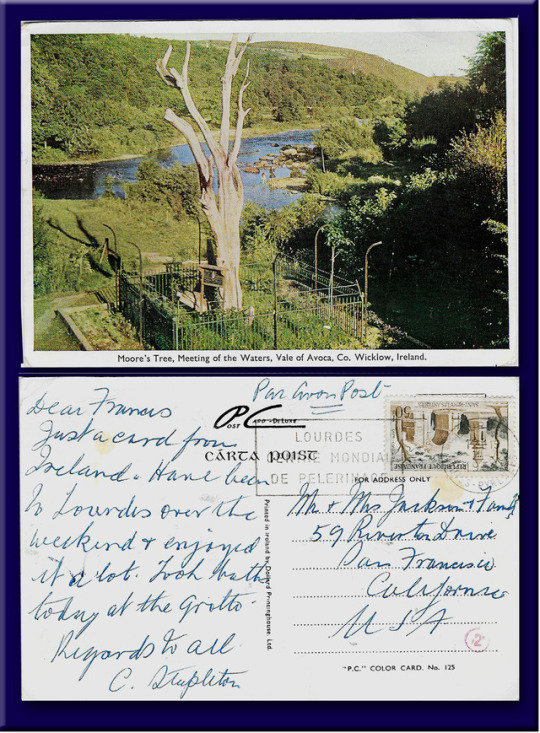 Moore's Tree, Meeting of the Waters, Vale of Avoca, Co. Wicklow, Ireland.
Par Avon Post
Dear Francis
Just a card from
Ireland. Have been
to Lourdes over the
weekend & enjoyed
it a lot. Took baths
today at the Grotto.
Regards to all.
C. Stapleton
PC
POST CARD - DE LUXE
CÁRTA POIST
LOURDES
CENTRE MONDIAL
DE PELERINAGE
50
REPUBLIQUE FRANÇAISE
FOR ADDRESS ONLY
Mr & Mrs Jackson & Family
59 Riverton Drive
San Francisco
California
USA
2
Printed in Ireland by Dollard Printinghouse, Ltd.
"P.C." COLOR CARD. No. 125